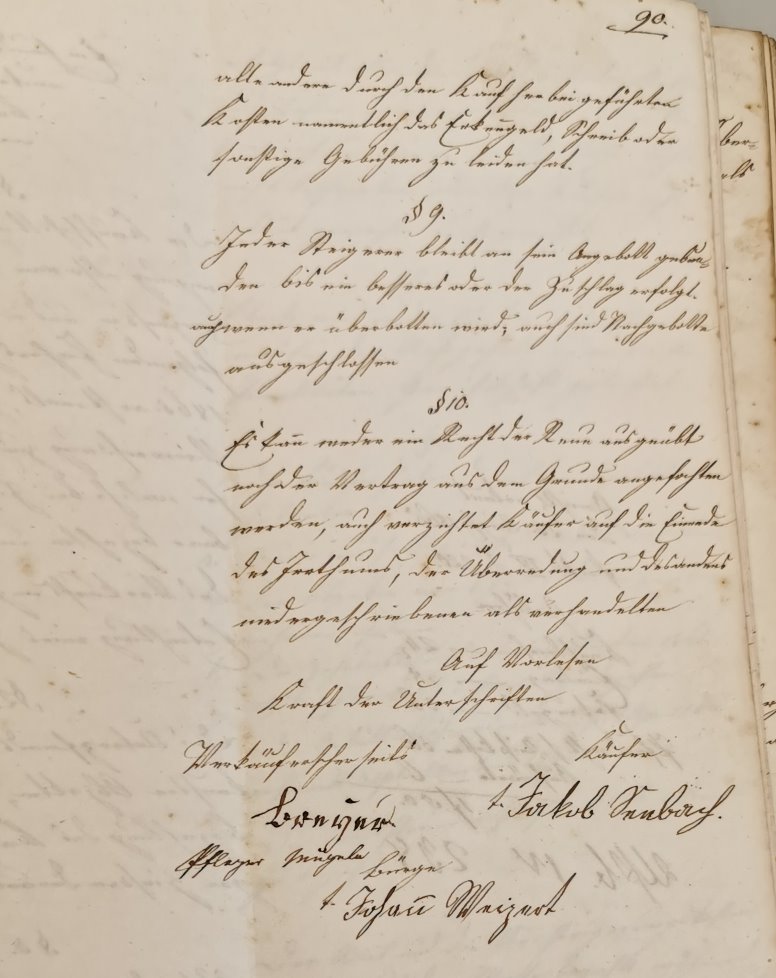 90.
alle andere durch den Kauf herbei geführten
Kosten namentlich das Erkenngeld, Schreib oder
sonstige Gebühren zu leiden hat.
§ 9.
Jeder Steigerer bleibt an sein Angebott gebun-
den bis ein besseres oder der Zuschlag erfolgt.
auch wenn er überbotten wird; auch sind Nachgebotte
ausgeschlossen
§ 10.
Es kan̄ weder ein Recht der Reue ausgeübt
noch der Vertrag aus dem Grunde angefochten
werden, auch verzichtet Käufer auf die Einrede
des Irrthums, der Überredung und des anders
niedergeschriebenen als verhandelten
Auf Vorlesen
Kraft der Unterschriften
Verkäuferscherseits
Käufer
Breyer
t. Jakob Seebach.
Pfleger
Bürge
t. Johan̄ Weizert
ber-
als